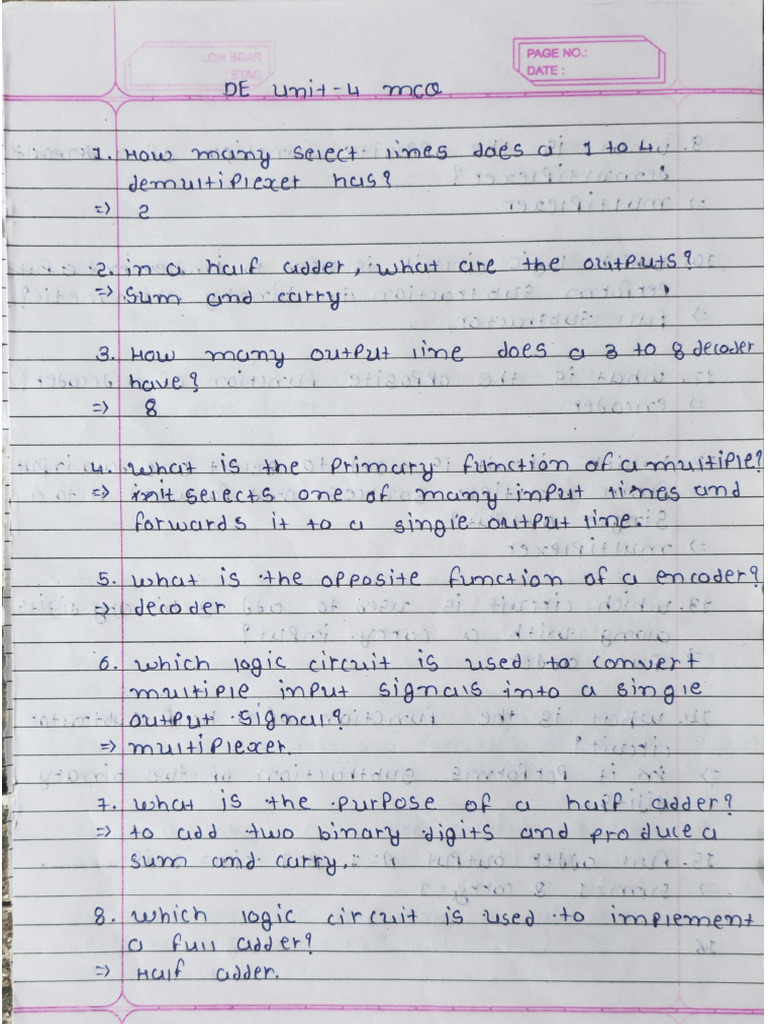 PAGE NO.:
DATE :
DE unit-4 mcQ
1. How many select lines does a 1 to 4
demultiplexer has?
=) 2
2. in a half adder, what are the outputs?
=) sum and carry
3. How many output line does a 3 to 8 decoder
have?
=) 8
4. what is the primary function of a multiple?
=) selects one of many input lines and
forwards it to a single output line.
5. what is the opposite function of a encoder?
=) decoder
6. which logic circuit is used to convert
multiple input signals into a single
output signal?
=) multiplexer.
7. what is the purpose of a half adder?
=) to add two binary digits and produce a
sum and carry.
8. which logic circuit is used to implement
a full adder?
=) Half adder.